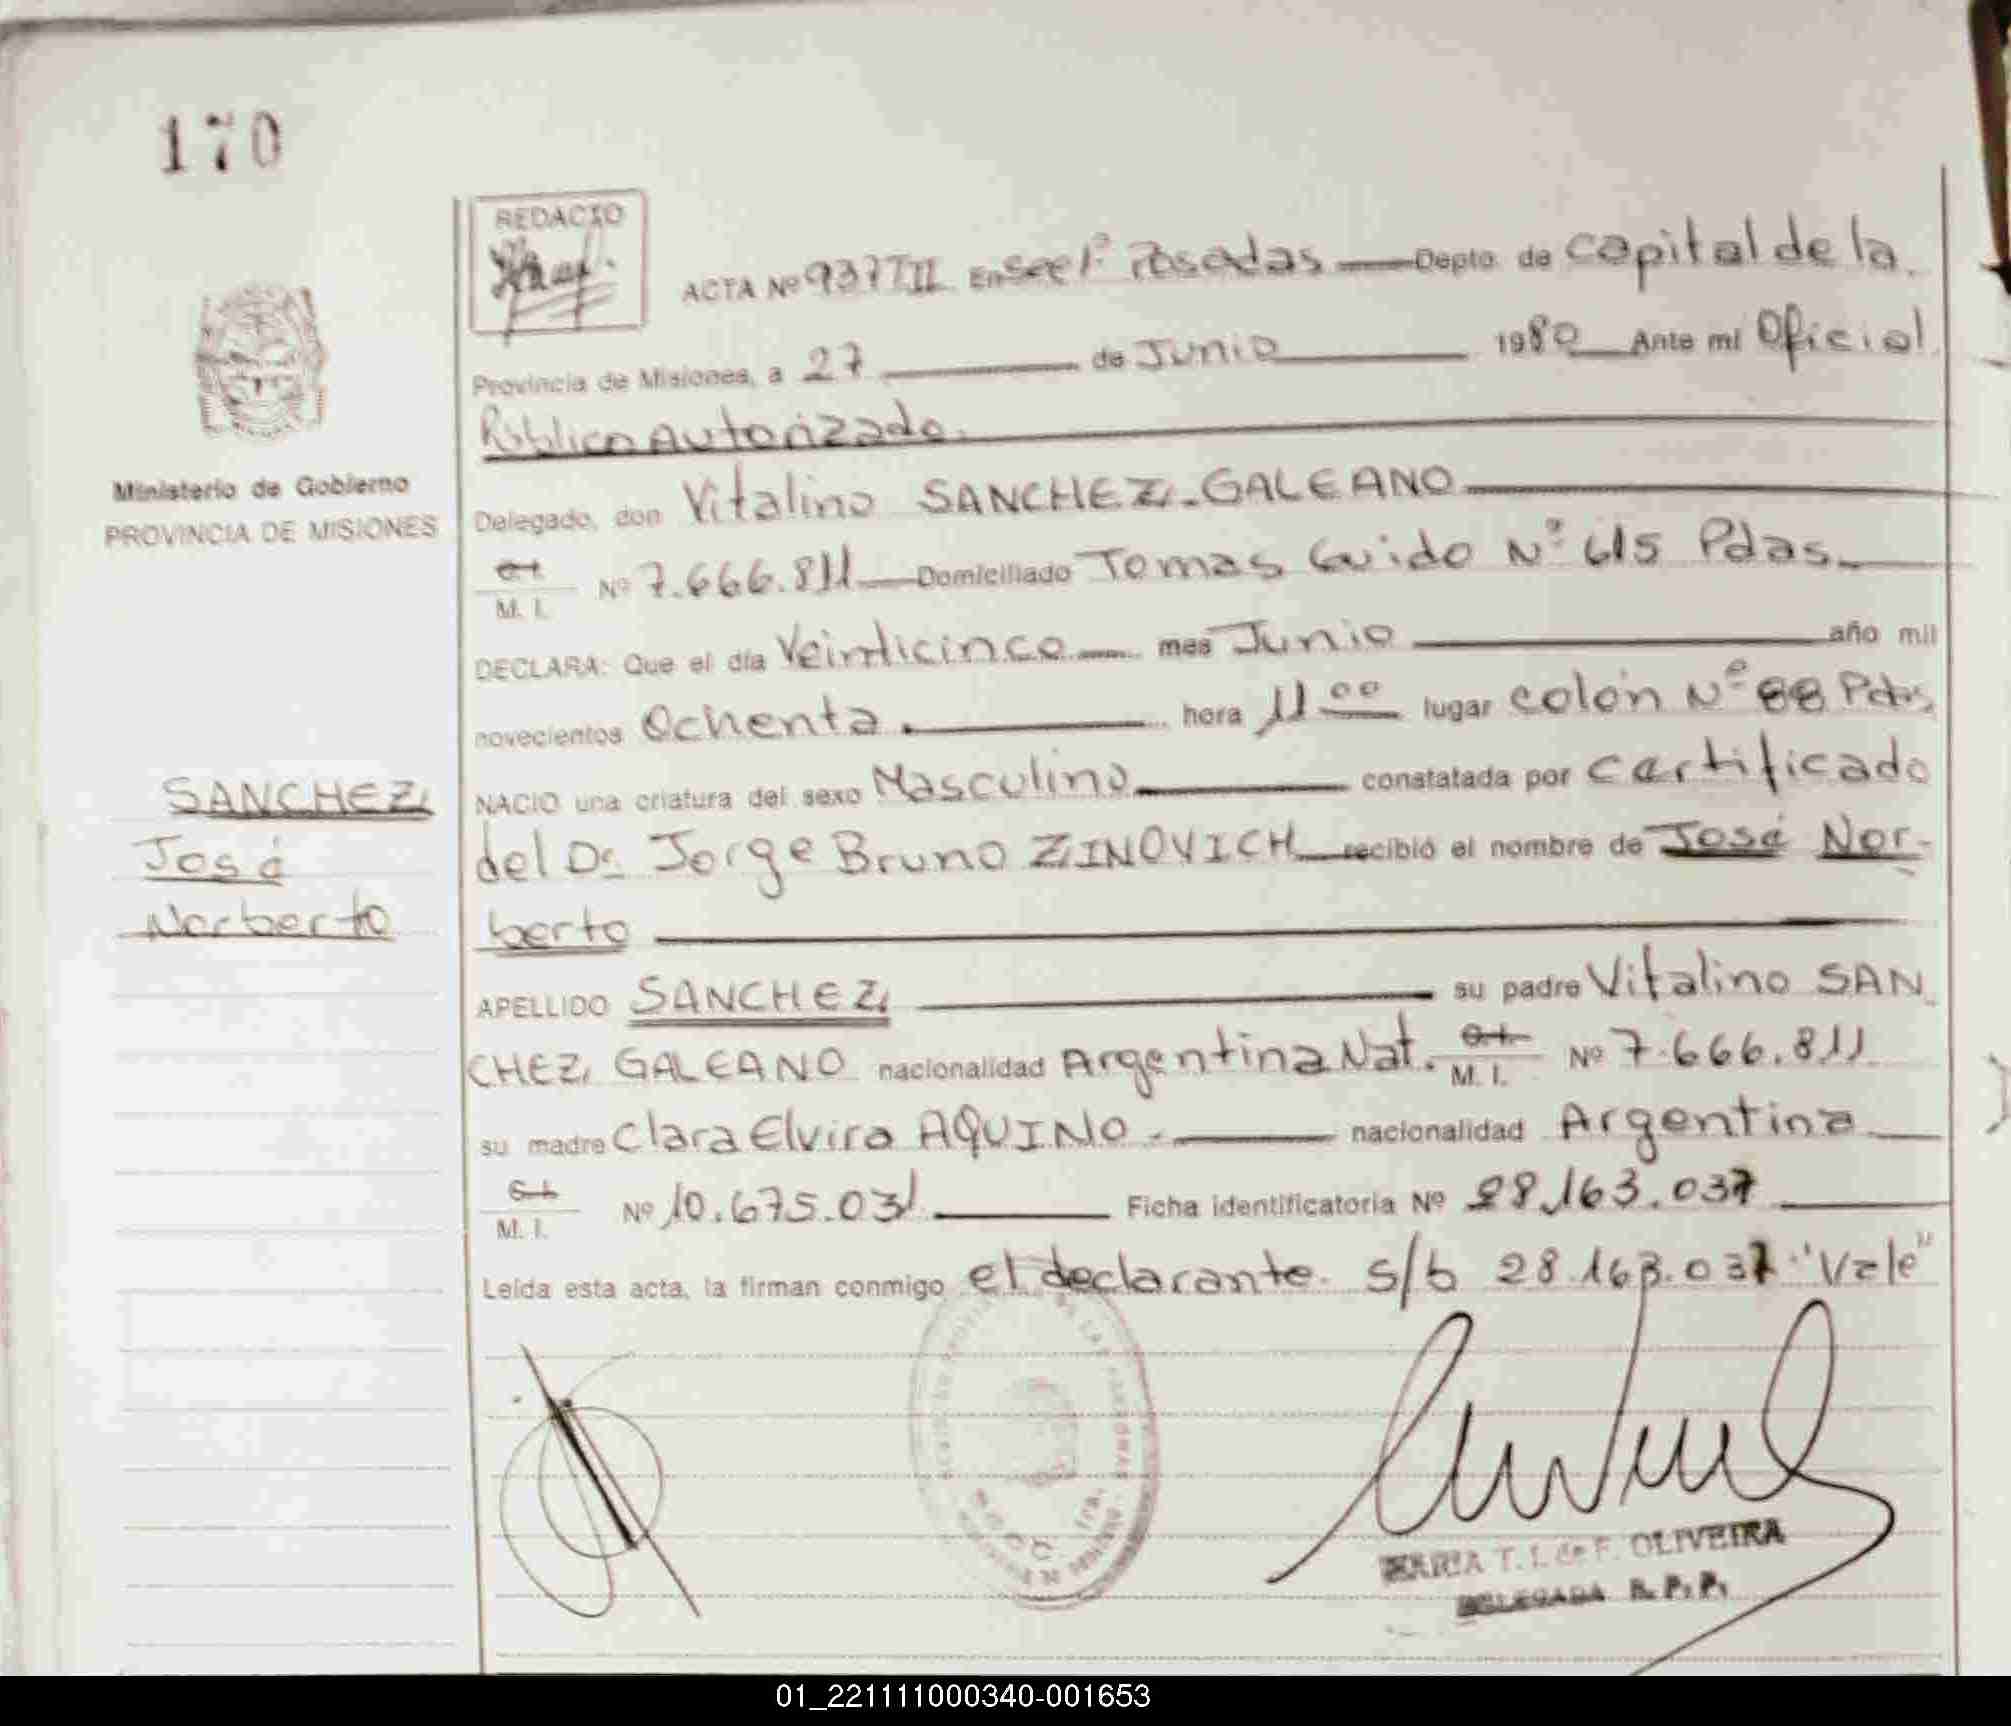 170
REDACTO
ACTA Nº 937 TII En Secc 1ª Posadas Depto. de Capital de la
Provincia de Misiones, a 27 de Junio 1980 Ante mi Oficial
Público Autorizado.
Ministerio de Gobierno
PROVINCIA DE MISIONES
Delegado, don Vitalino SANCHEZ-GALEANO
M. I. Nº 7.666.811 Domiciliado Tomas Guido Nº 615 Pdas.
DECLARA: Que el día Veinticinco mes Junio año mil
novecientos Ochenta. hora 11 00 lugar colón Nº 88 Pdas,
SANCHEZ
José
Norberto
NACIO una criatura del sexo Masculino constatada por certificado
del Dr. Jorge Bruno ZINOVICH recibió el nombre de José Nor-
berto
APELLIDO SANCHEZ su padre Vitalino SAN
CHEZ GALEANO nacionalidad Argentina Nat. M. I. Nº 7.666.811
su madre Clara Elvira AQUINO.- nacionalidad Argentina
M. I. Nº 10.675.031 Ficha identificatoria Nº 28.163.037
Leída esta acta, la firman conmigo el declarante. s/b 28.163.037 "Vale"
MARIA T. I. de F. OLIVEIRA
DELEGADA R. P. P.
01_221111000340-001653